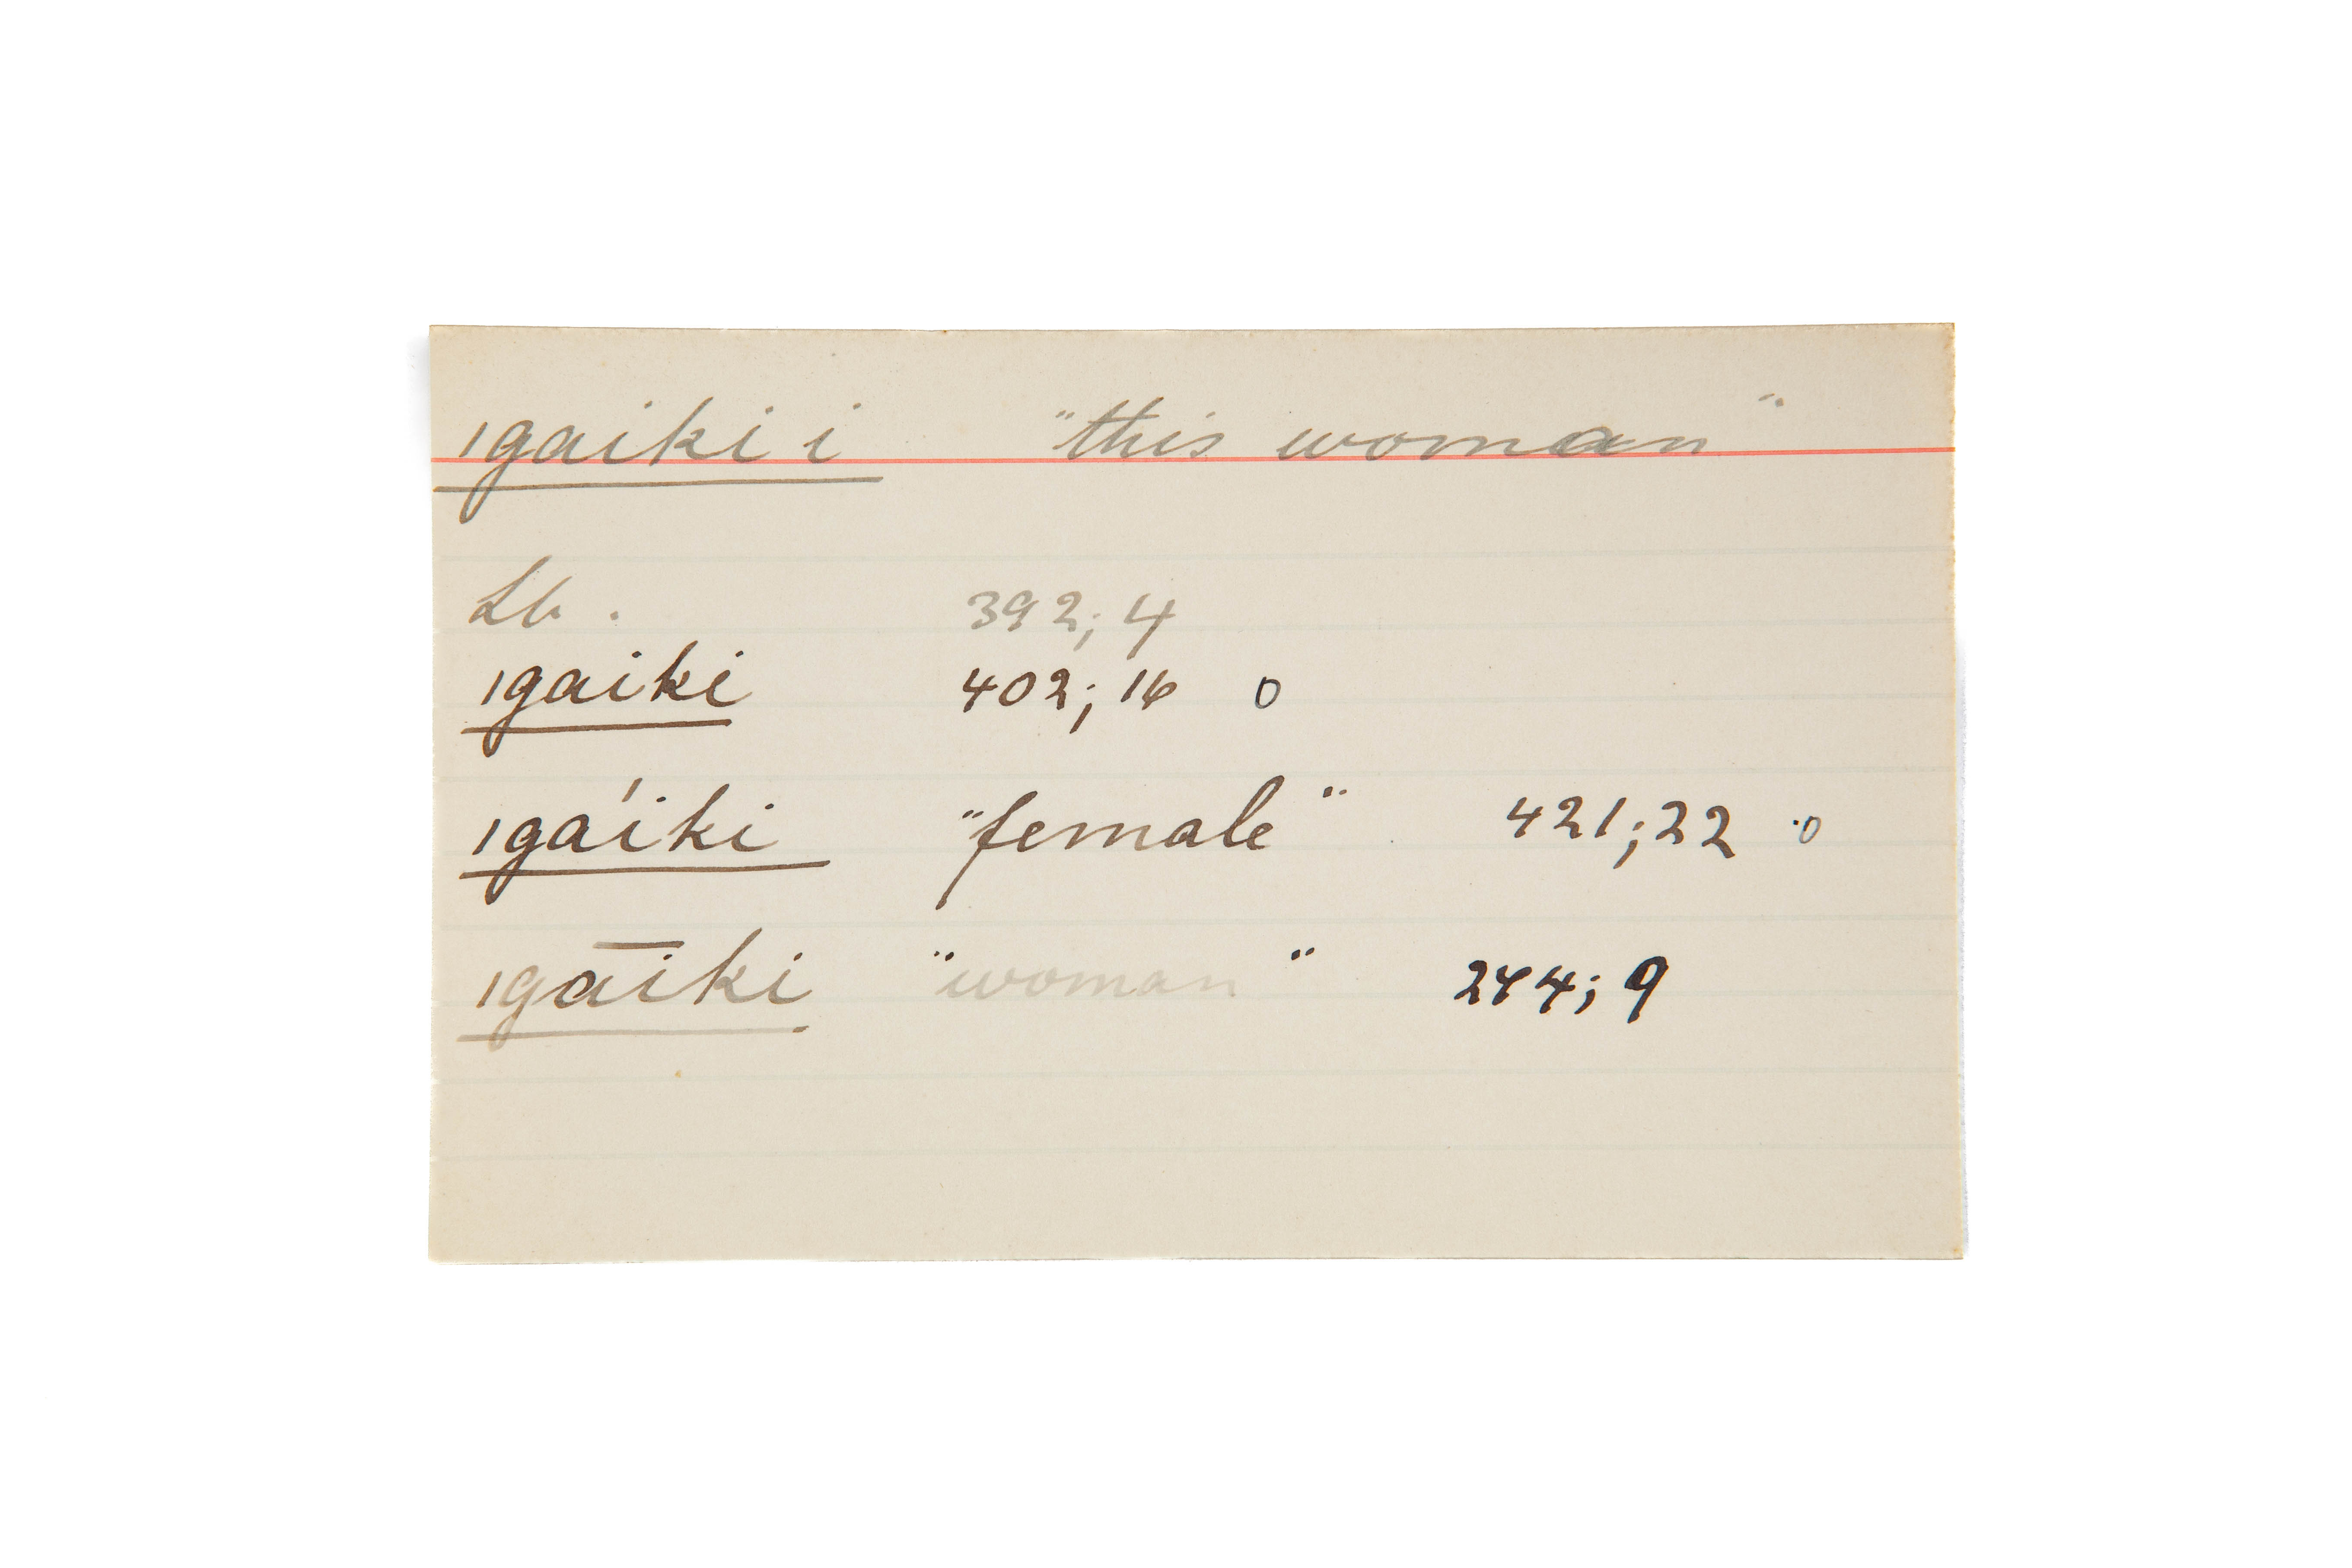 ıgaiki i "this woman"
Lb. 392; 4
ıgaiki 402; 16 0
ıgáiki "female" 421; 22 0
ıgāiki "woman" 244; 9